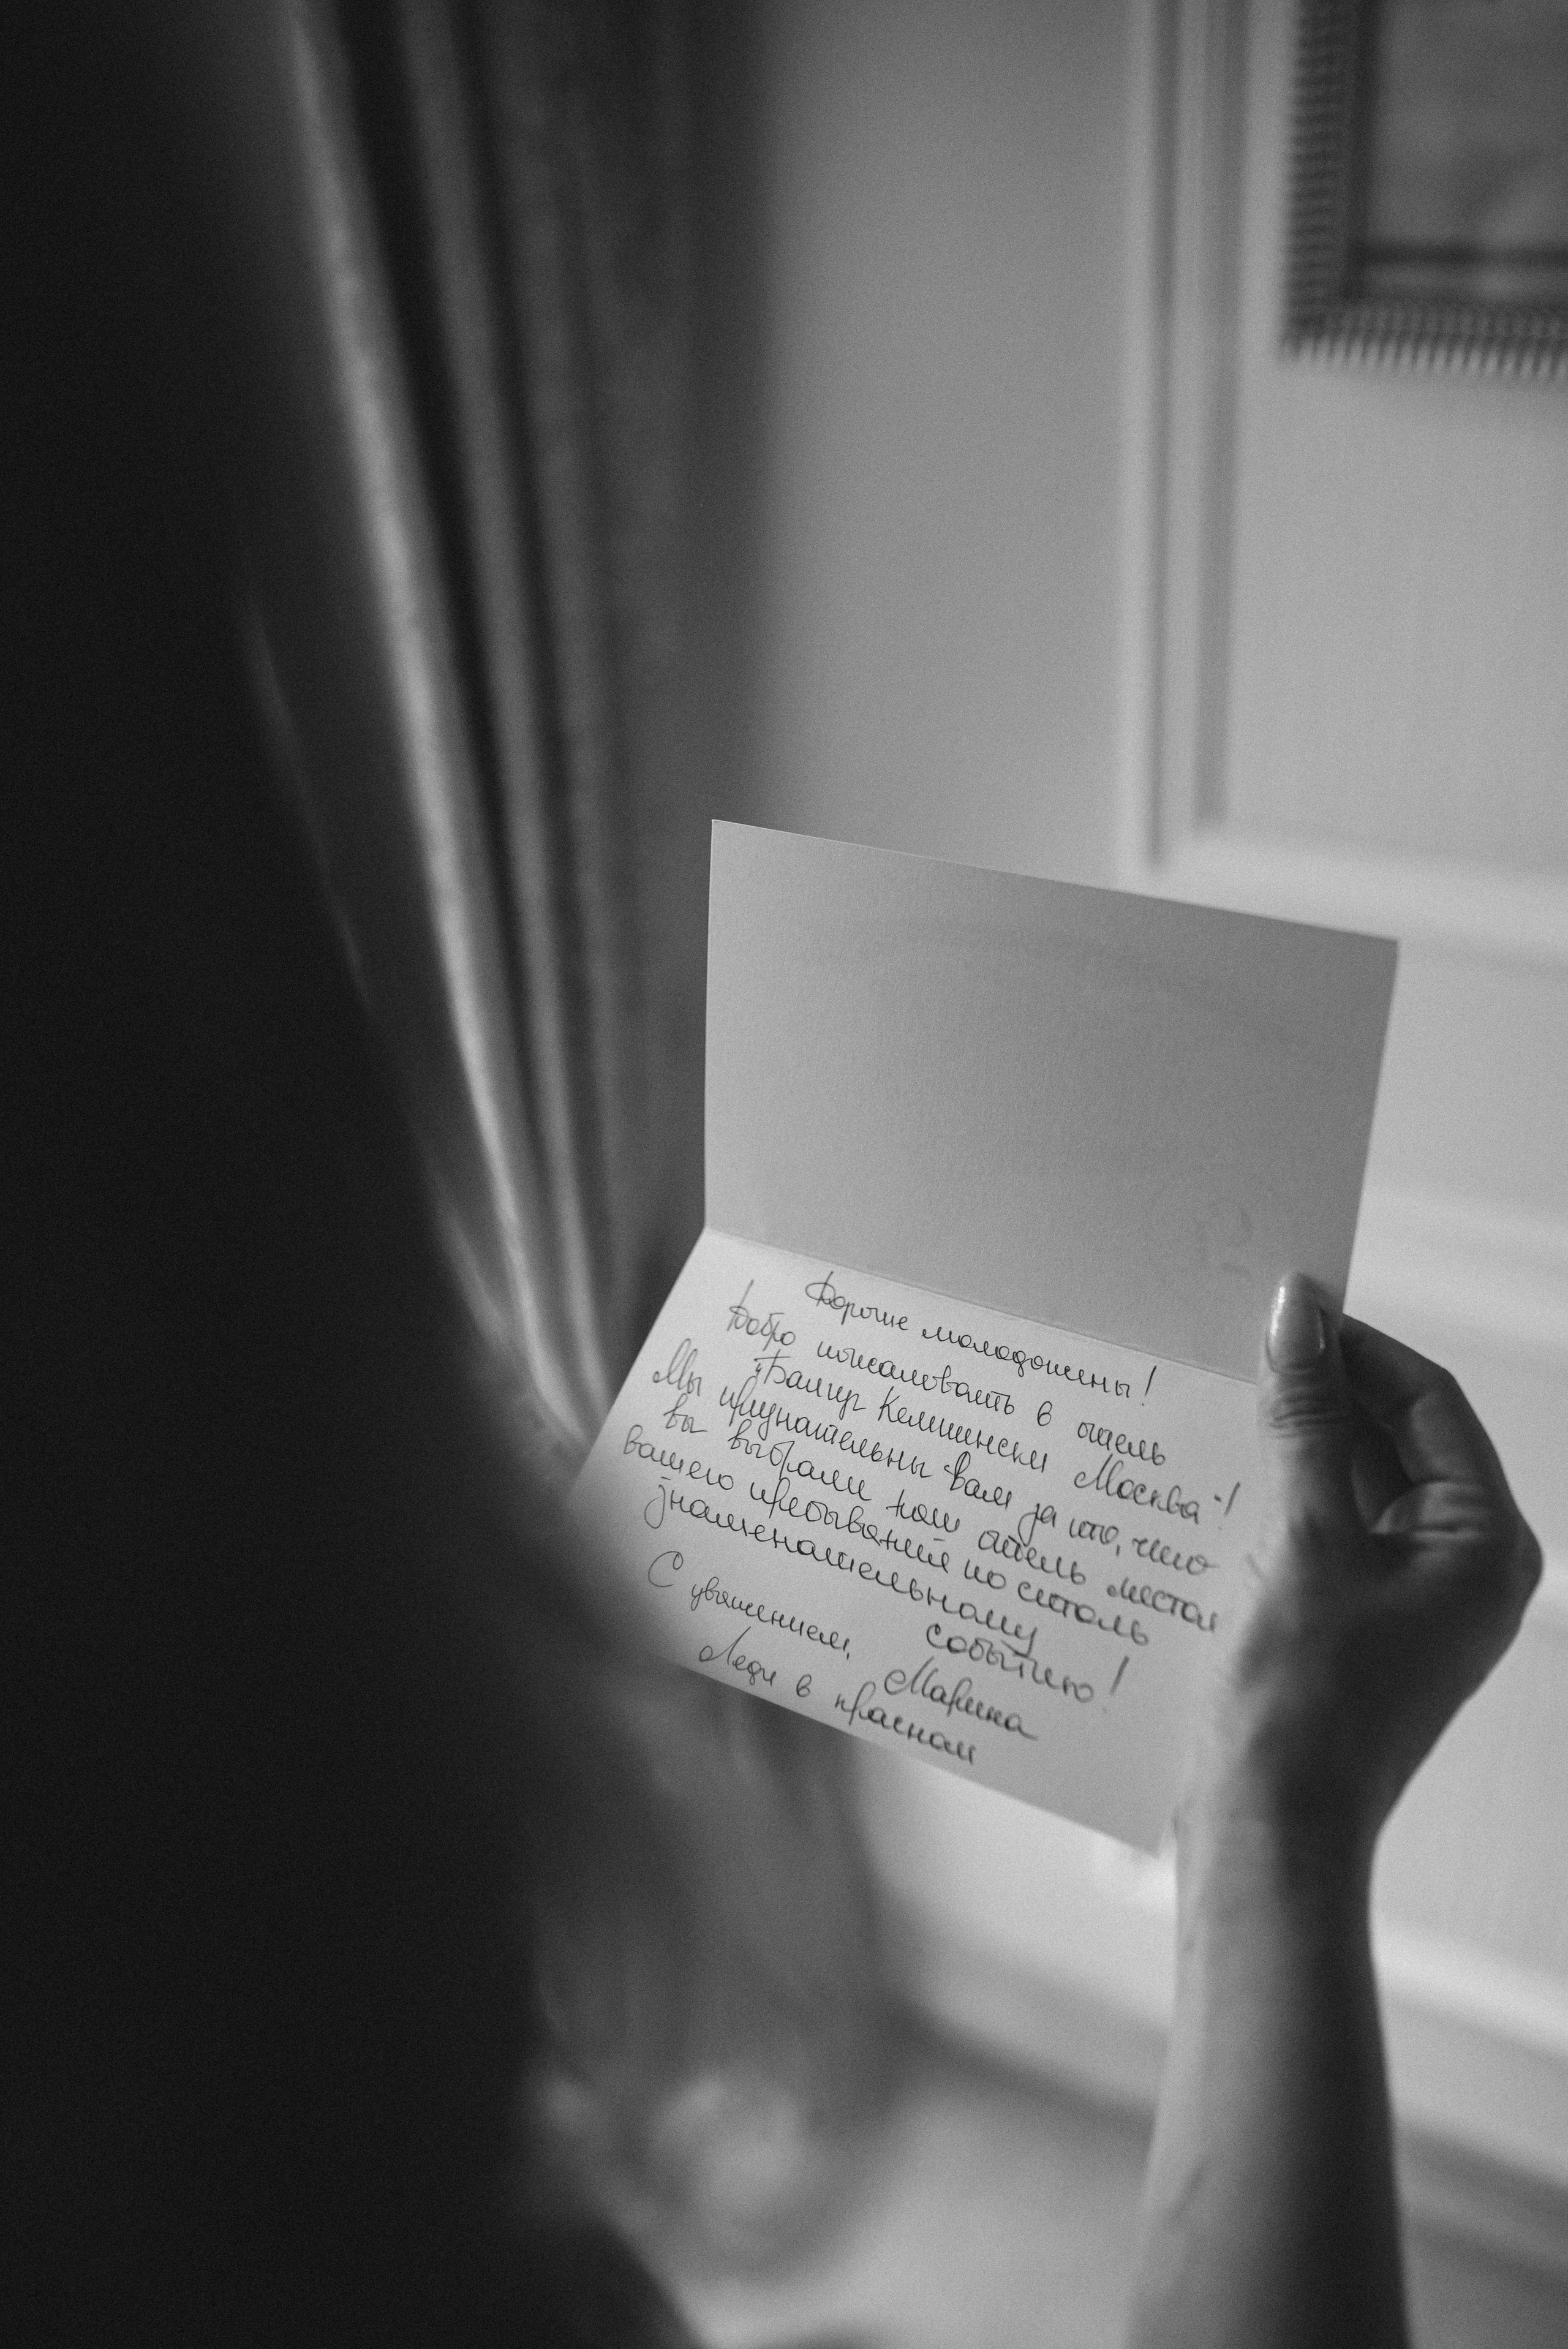 Дорогие молодожены!
Добро пожаловать в отель
"Балчуг Кемпински Москва"!
Мы признательны вам за то, что
вы выбрали наш отель местом
вашего пребывания по столь
знаменательному событию!
С уважением, Марина
Леди в красном